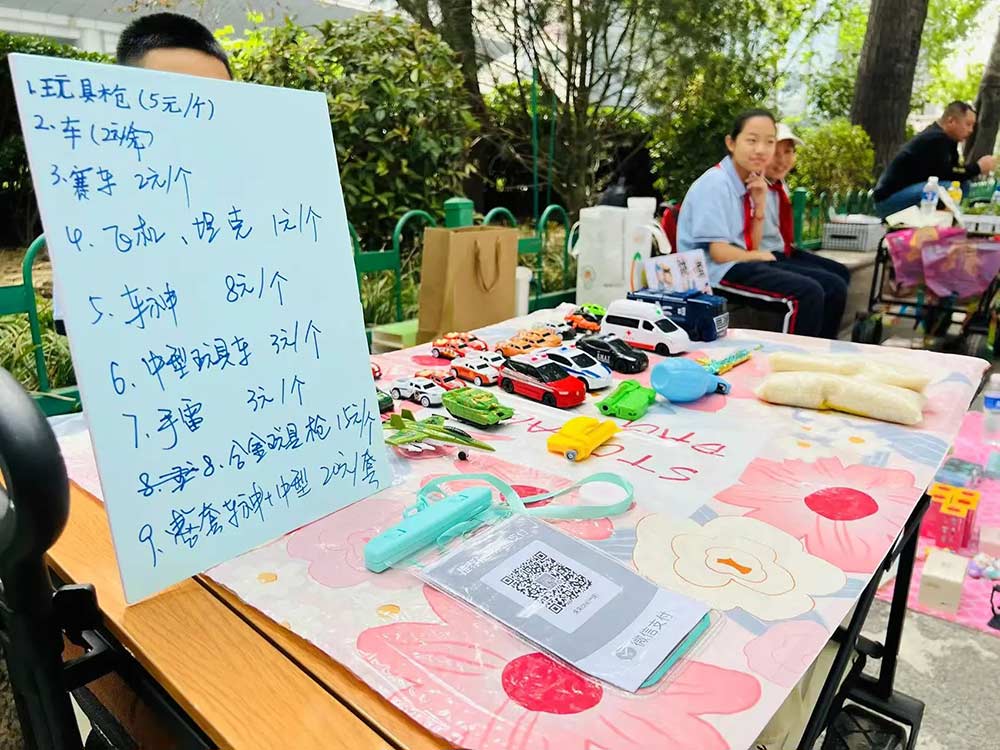 1.玩具枪(5元/个)
2.车(2元/个)
3.赛车 2元/个
4.飞机、坦克 1元/个
5.车神 8元/个
6.中型玩具车 3元/个
7.手雷 3元/个
8.合金玩具枪 15元/个
9.整套车神+中型 20元/套
微信支付